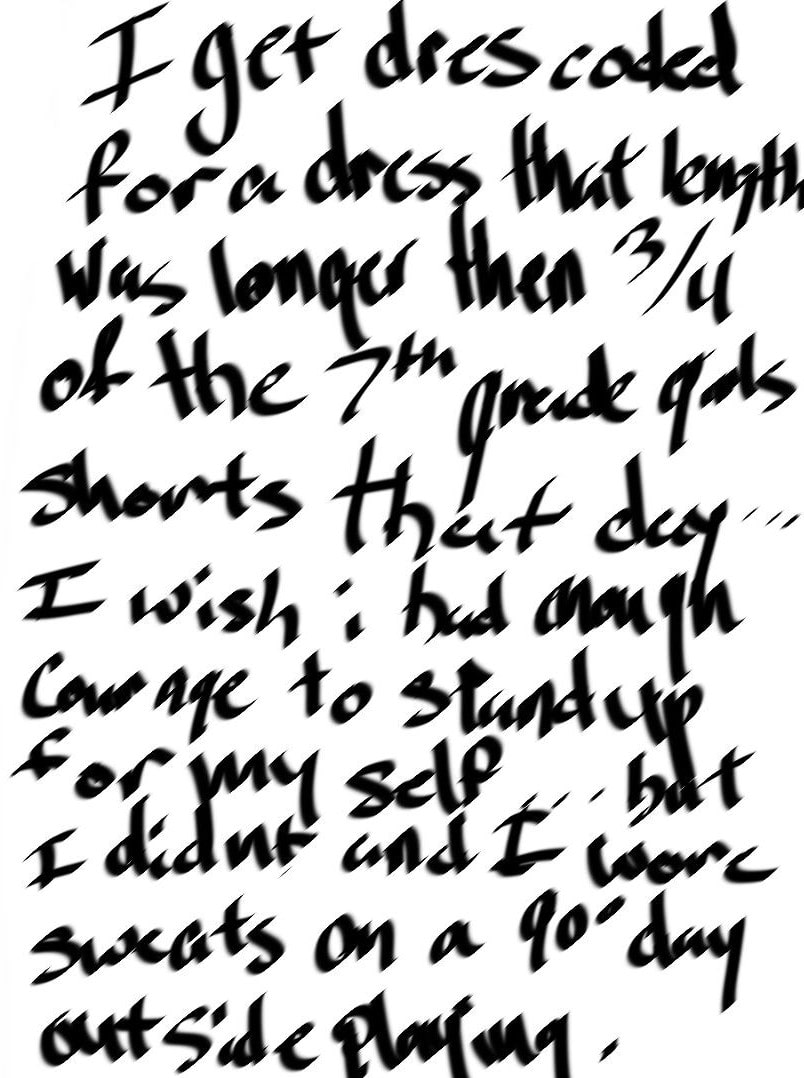 I get dres coded
for a dress that length
was longer then 3/4
of the 7th grade girls
shorts that day...
I wish i had enough
courage to stand up
for my self... but
I didnt and I wore
sweats on a 90° day
outside playing.